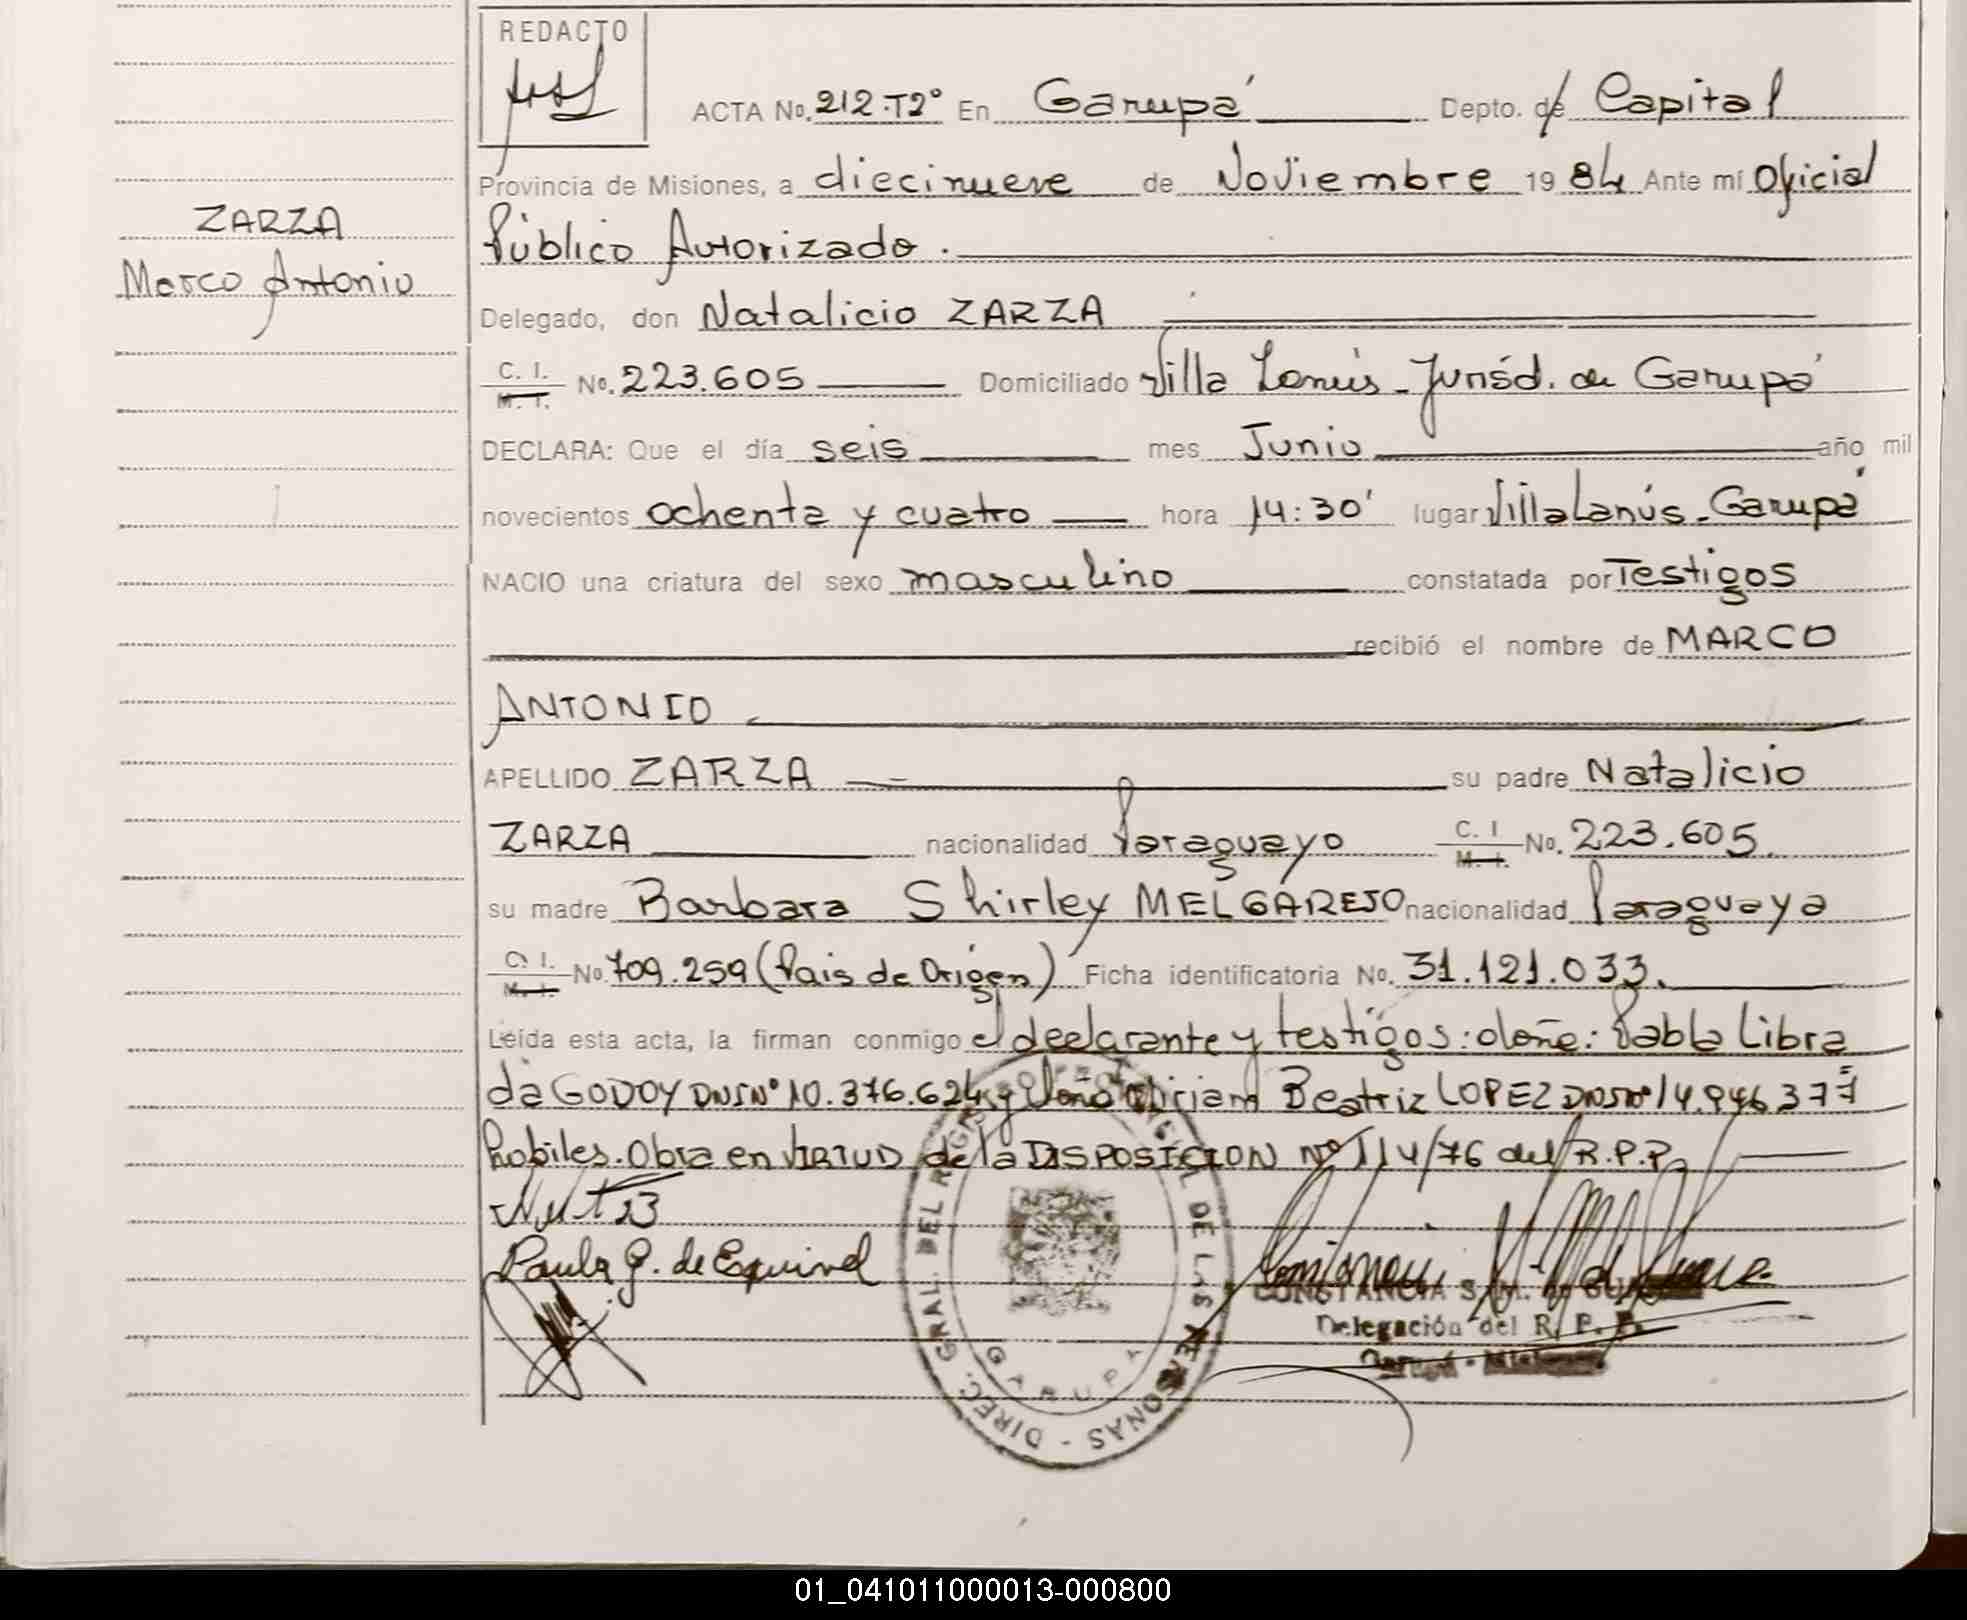 REDACTO
ACTA No. 212.T2° En Garupá Depto. de Capital
Provincia de Misiones, a diecinueve de Noviembre 19 84 Ante mí Oficial
Público Autorizado.
ZARZA
Marco Antonio
Delegado, don Natalicio ZARZA
C. I. M. I. No. 223.605 Domiciliado Villa Lanús - Jurisd. de Garupá
DECLARA: Que el día seis mes Junio año mil
novecientos ochenta y cuatro hora 14:30' lugar Villa Lanús - Garupá
NACIO una criatura del sexo masculino constatada por Testigos
recibió el nombre de MARCO
ANTONIO
APELLIDO ZARZA su padre Natalicio
ZARZA nacionalidad Paraguayo C. I M. I. No. 223.605.
su madre Barbara Shirley MELGAREJO nacionalidad Paraguaya
C. I. M. I. No. 709.259 (Pais de Origen) Ficha identificatoria No. 31.121.033.
Leída esta acta, la firman conmigo el declarante y testigos: doña: Pabla Libra
da GODOY DNI N° 10.376.624 y doña Miriam Beatriz LOPEZ DNI N° 14.946.377
Hobiles. Obra en VIRTUD de la DISPOSICION Nº 114/76 del R.P.P.
Paula G. de Esquivel
CONSTANCIA S. M.
Delegación del R. P. P.
Garupá - Misiones
DIREC. GRAL. DEL REGISTRO DE LAS PERSONAS -
GARUPA
01_041011000013-000800